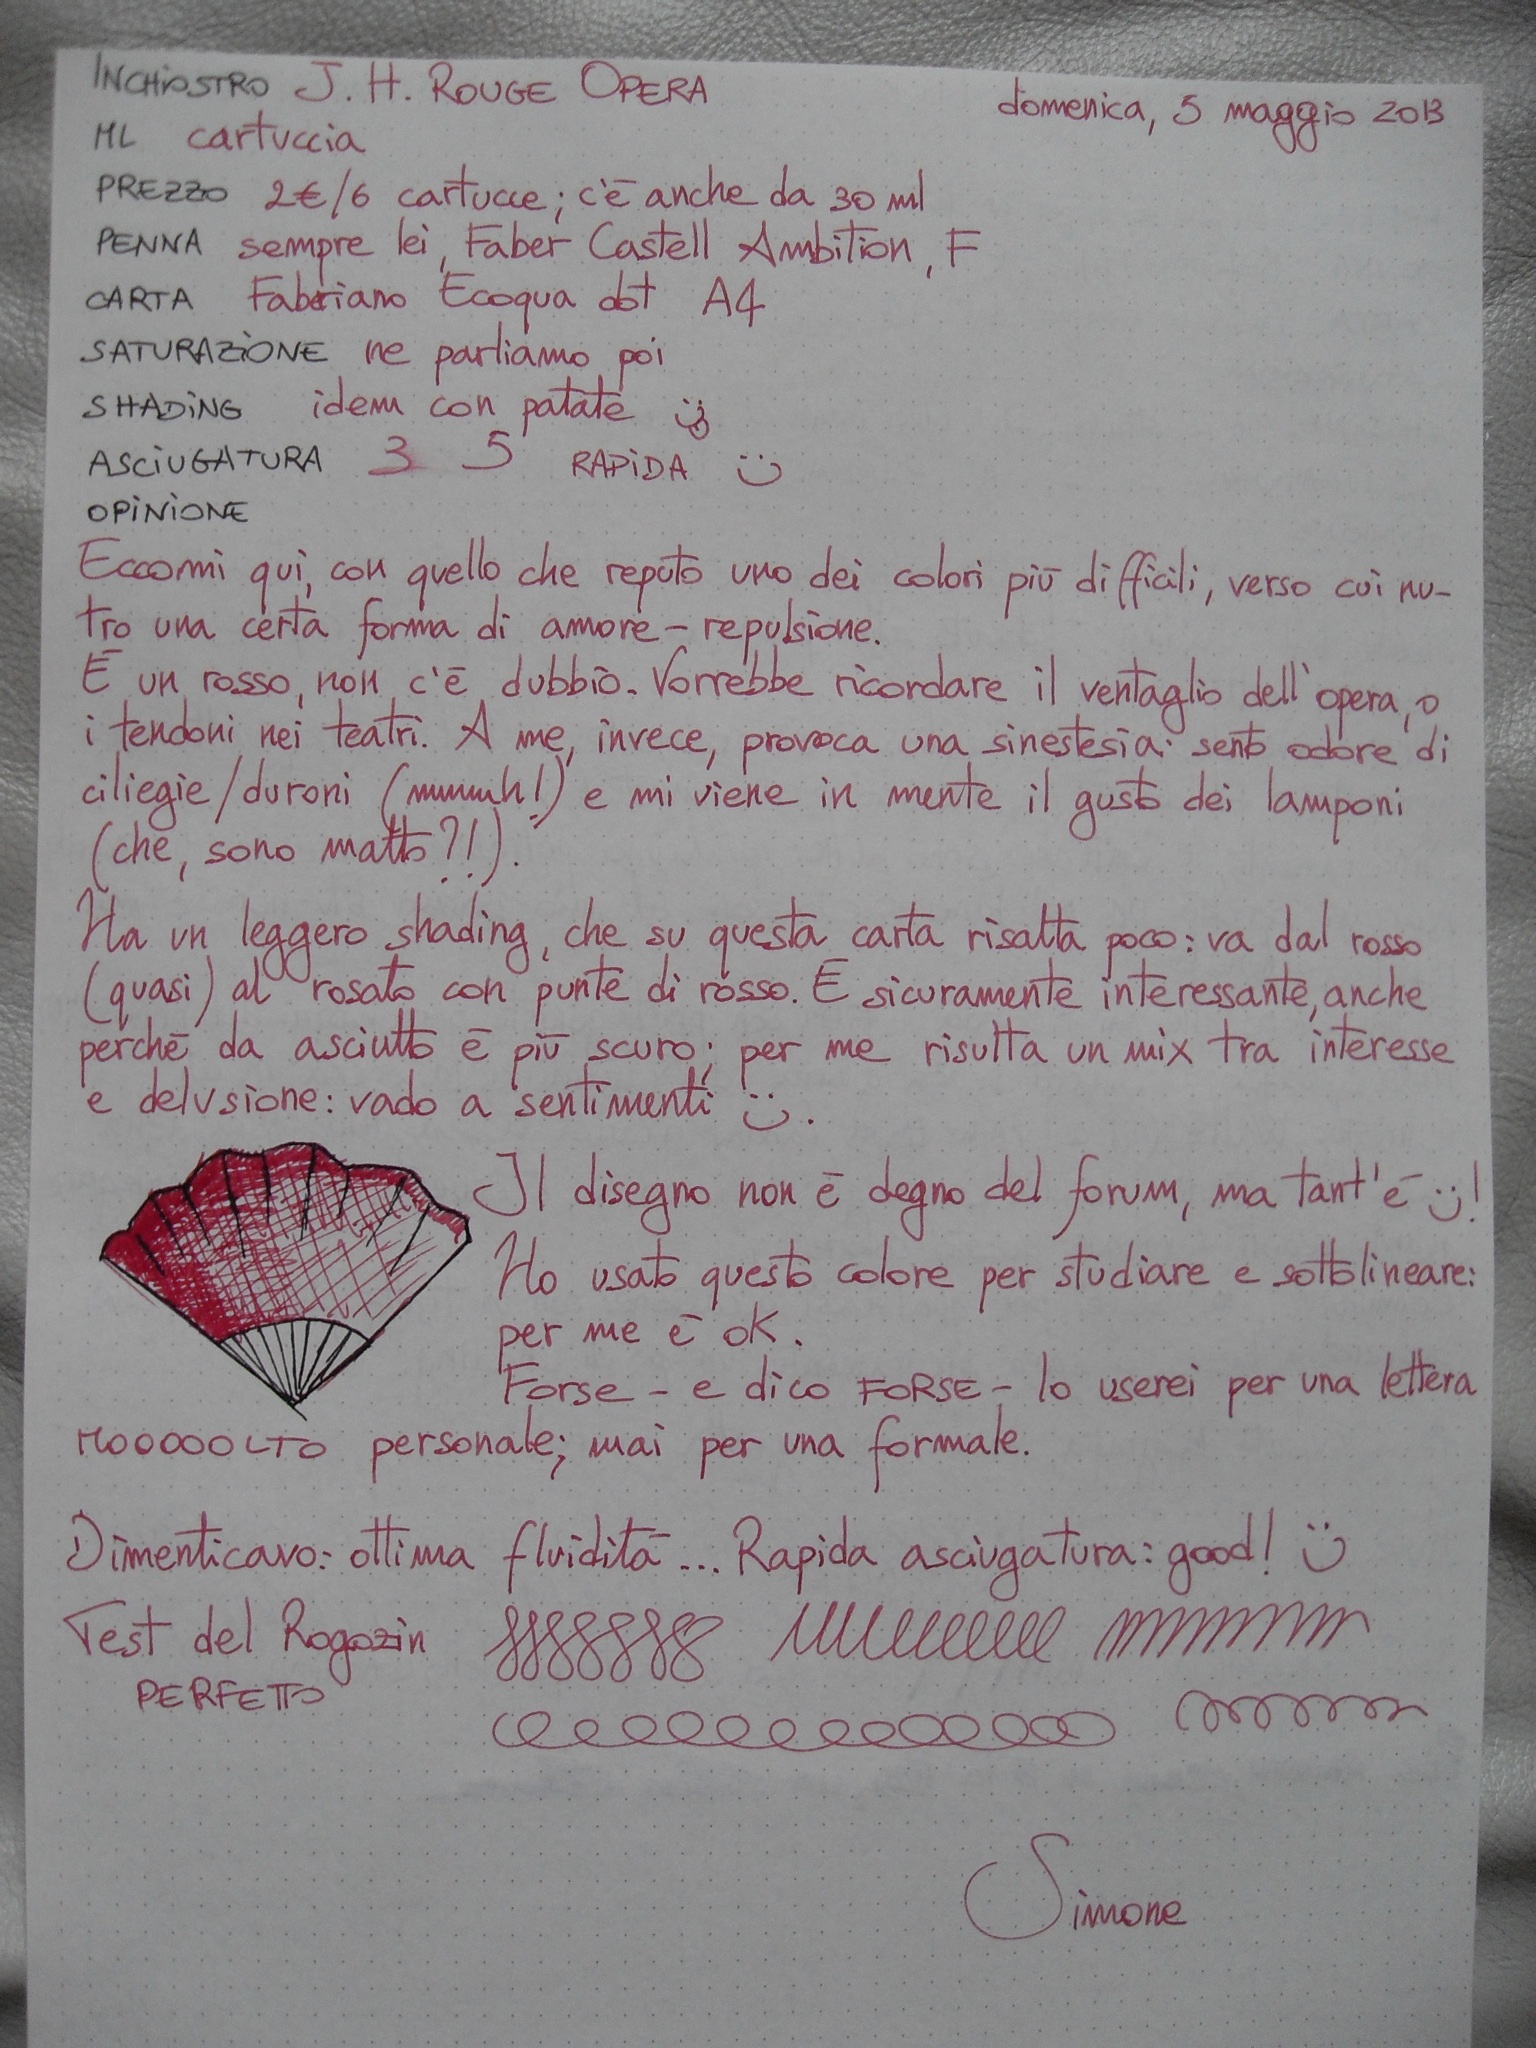 INCHIOSTRO J. H. ROUGE OPERA
domenica, 5 maggio 2013
ML cartuccia
PREZZO 2€/6 cartucce; c'è anche da 30 ml
PENNA sempre lei, Faber Castell Ambition, F
CARTA Fabriano Ecoqua dot A4
SATURAZIONE ne parliamo poi
SHADING idem con patate
ASCIUGATURA 3 5 RAPIDA :)
OPINIONE
Eccomi qui, con quello che reputo uno dei colori più difficili, verso cui nu-
tro una certa forma di amore - repulsione.
È un rosso, non c'è dubbio. Vorrebbe ricordare il ventaglio dell'opera, o
i tendoni nei teatri. A me, invece, provoca una sinestesia: sento odore di
ciliegie/duroni (mmmh!) e mi viene in mente il gusto dei lamponi
(che, sono matto?!).
Ha un leggero shading, che su questa carta risalta poco: va dal rosso
(quasi) al rosato con punte di rosso. È sicuramente interessante, anche
perché da asciutto è più scuro; per me risulta un mix tra interesse
e delusione: vado a sentimenti :).
Il disegno non è degno del forum, ma tant'è :)!
Ho usato questo colore per studiare e sottolineare:
per me è OK.
Forse - e dico FORSE - lo userei per una lettera
MOOOOOLTO personale; mai per una formale.
Dimenticavo: ottima fluidità... Rapida asciugatura: good! :)
Test del Rogozin
PERFETTO
Simone